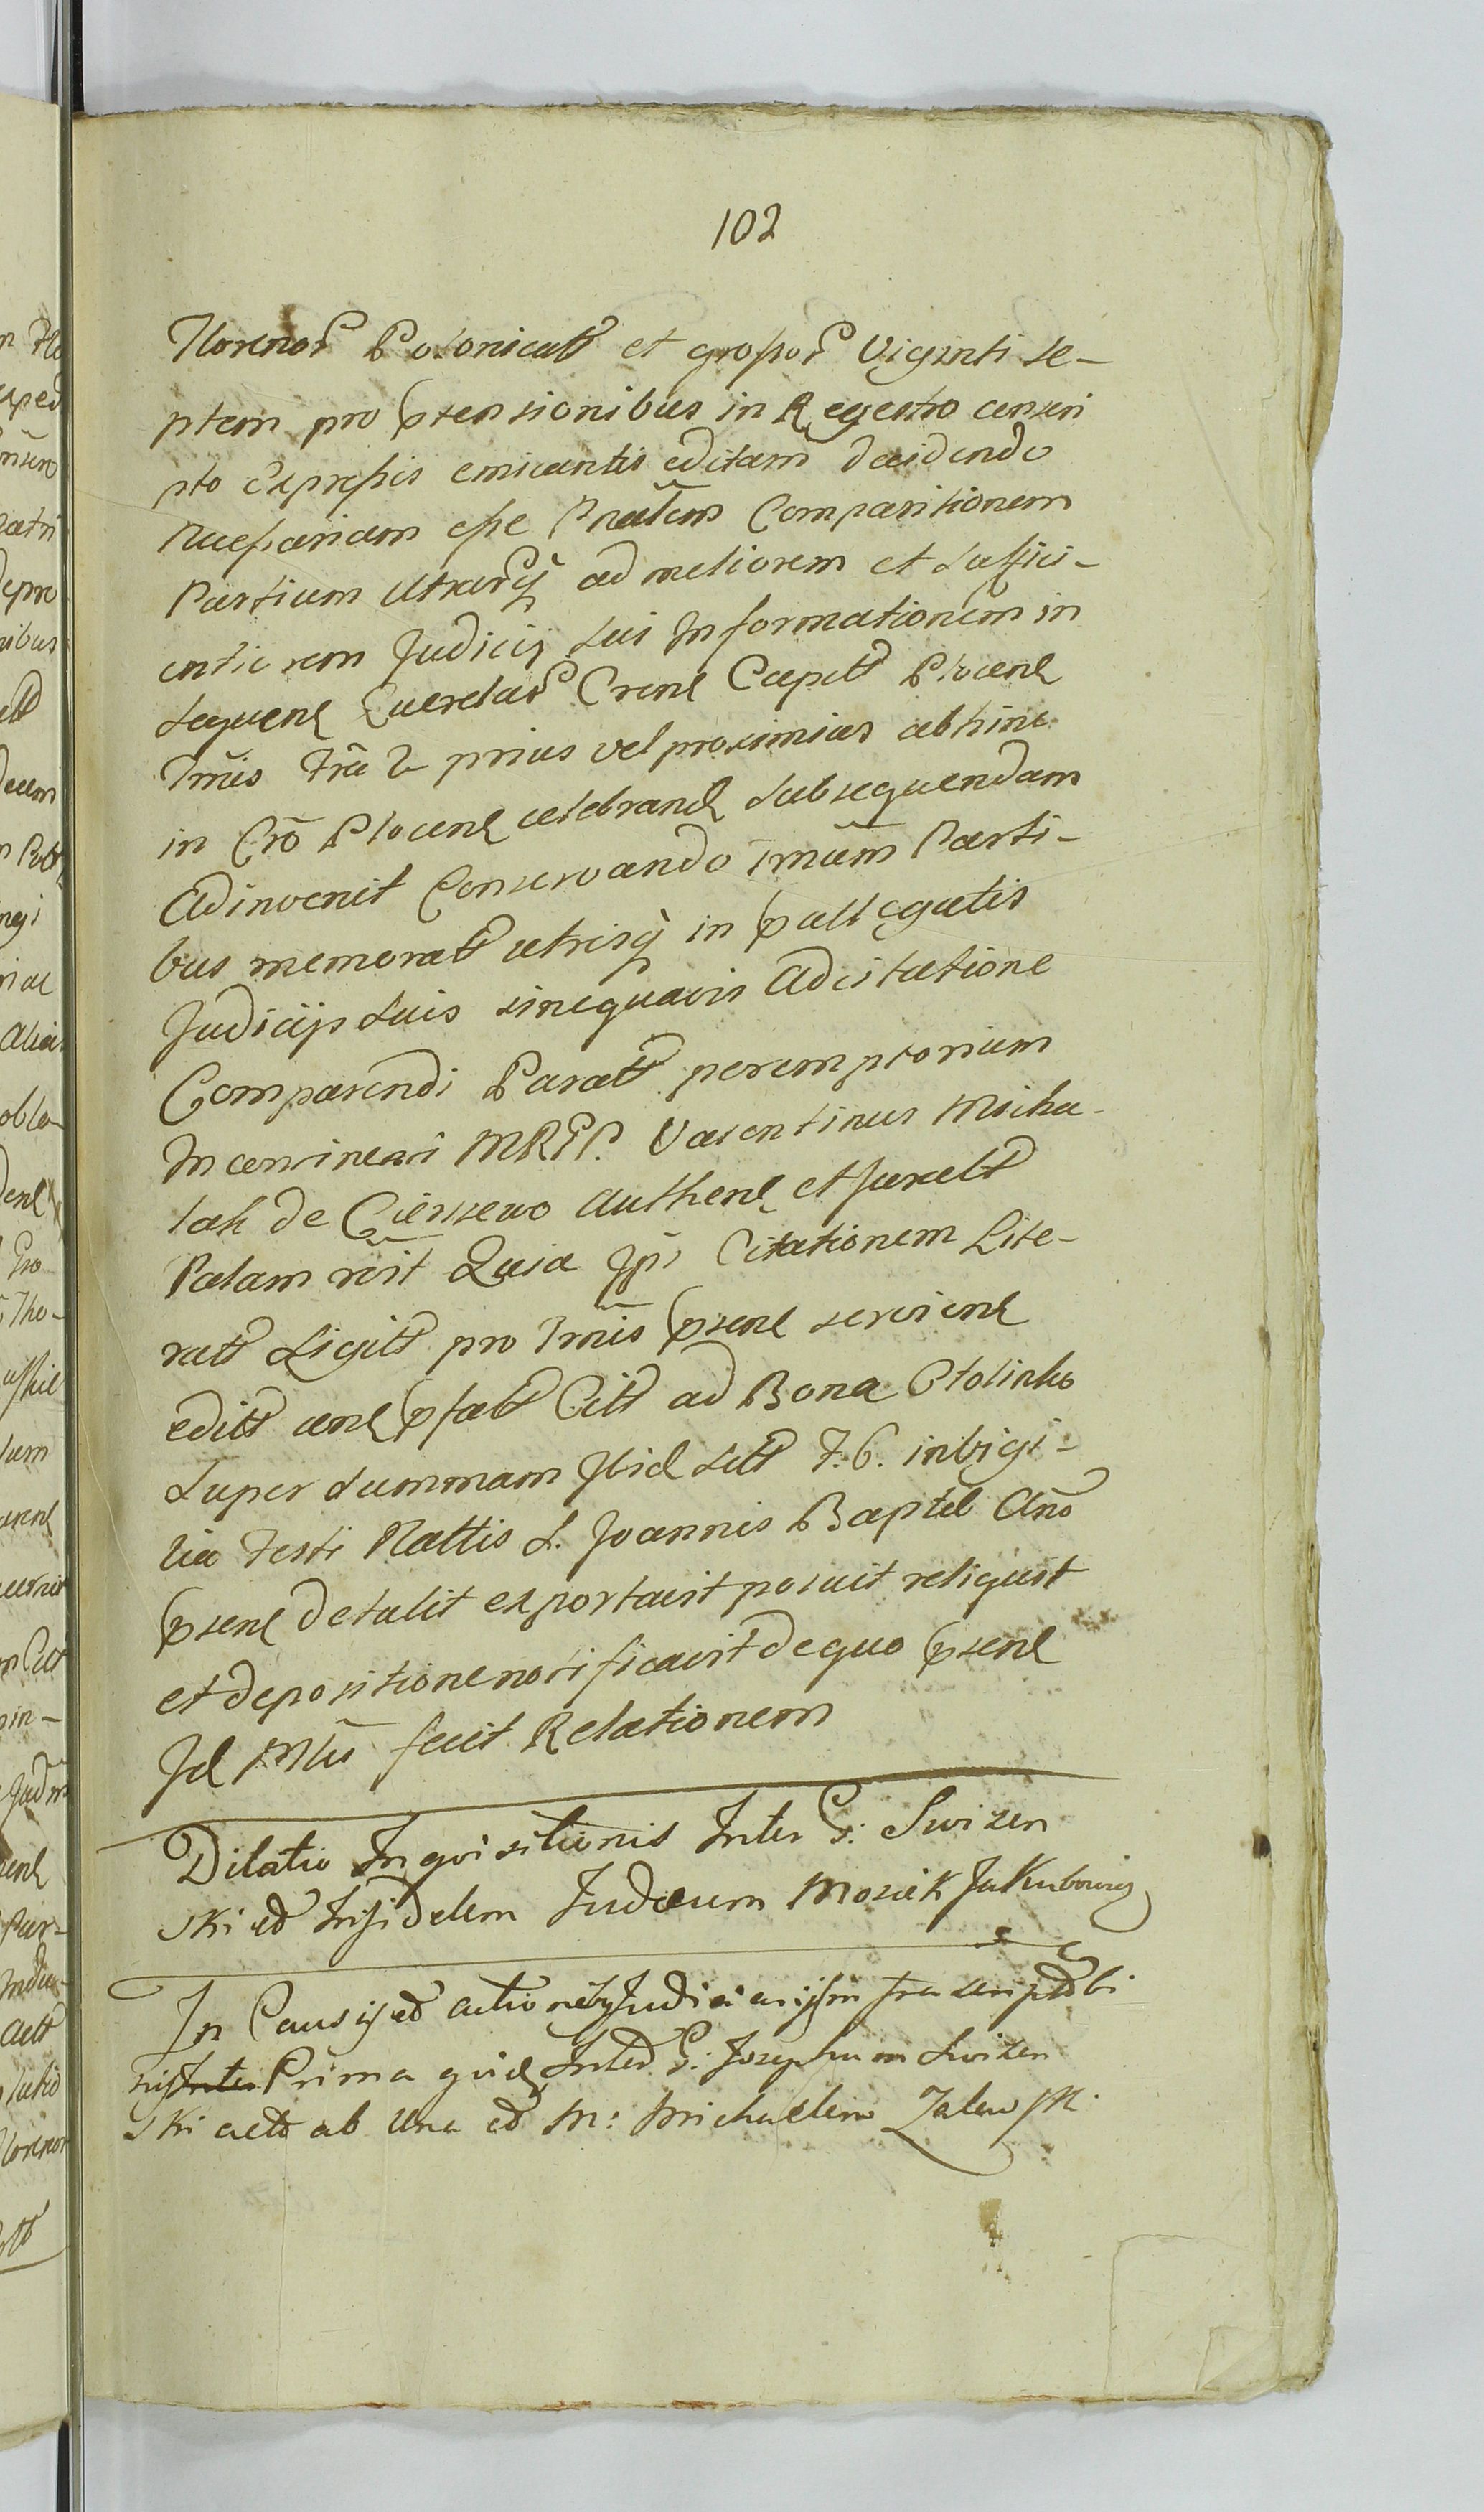 102
Florenor Polonicalt et grossor Viginti se-
ptem pro ptensionibus in Regestro conscri
pto expressis emicantis editam decidendo
Necessariam esse Pnalem Comparitionem
Partium Utrarq ad meliorem et suffici-
entiorem Judicij sui Informationem in
sequen Querelar Cren Capit Plocen
Tmis Fra 2 prius vel proximius abhinc
in Cro Plocen celebrand subsequendam
Adinvenit Conservando Tmum Parti-
bus memorat utrisq in pallegatis
Judicijs suis sinequavis Adcitatione
Comparendi Parat peremptorium
In continenti MRPP. Valentinus Micha-
lak de Ciersewo Authen et Jurat
Palam roit Quia Ipse Citationem Lite-
rat Sigilt pro Tmis psen servien
edit cen pfat Cit ad Bona Ptolinko
super summam Ibid sitt F. 6. in vigi-
lia Festi Nattis S. Joannis Baptae Ano
psen detulit exportavit posuit reliquit
et depositione notificavit de quo psen
Id Mtus fecit Relationem
Dilatio Inquisitionis Inter G: Swizen
ski et Infidelem Judaeum Mosiek Jakubowicz
In Causis et actionebq Judiciarijs in fra scriptis bi
nis Inter Prima quid Inter G: Josephum Swizen
ski act ab Una et M: Michaelem Zalewski